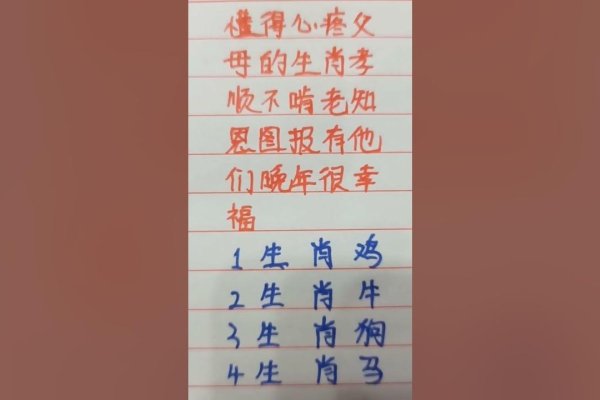 懂得心疼父
母的生肖孝
顺不啃老知
恩图报有他
们晚年很幸
福
1 生 肖 鸡
2 生 肖 牛
3 生 肖 狗
4 生 肖 马